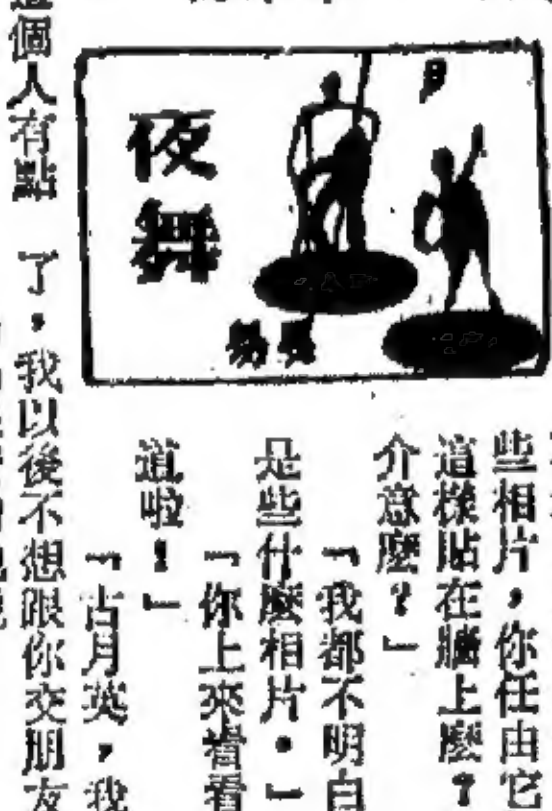 夜舞
些相片，你任由它
這樣貼在牆上麼？
介意麼？」
「我都不明白
是些什麼相片。」
「你上來看看
道啦！」
「古月英，我
個人有點
了，我以後不想跟你交朋友